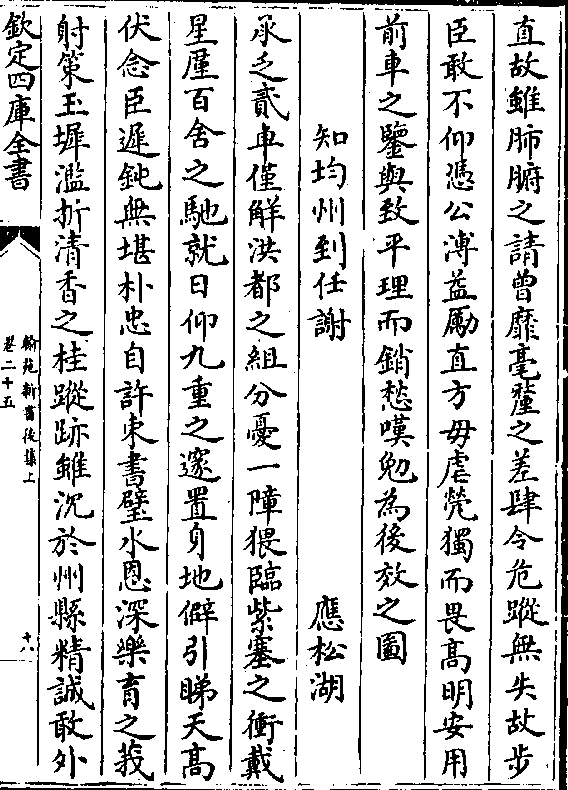 直故雖肺腑之請曾靡毫釐之差肆令危蹤無失故步
臣敢不仰憑公溥益勵直方毋虐煢獨而畏高明安用
前車之鑒輿致平理而銷愁嘆勉為後效之圖
知均州到任謝 應松湖
承乏貳車僅解洪都之組分憂一障猥臨紫塞之衝戴
星歷百舍之馳就日仰九重之邃置身地僻引睇天高
伏念臣遲鈍無堪朴忠自許束書璧水恩深樂育之莪
射策玉墀濫折清香之桂蹤跡雖沉於州縣精誠敢外
欽定四庫全書
翰苑新書後集上
卷二十五
十八